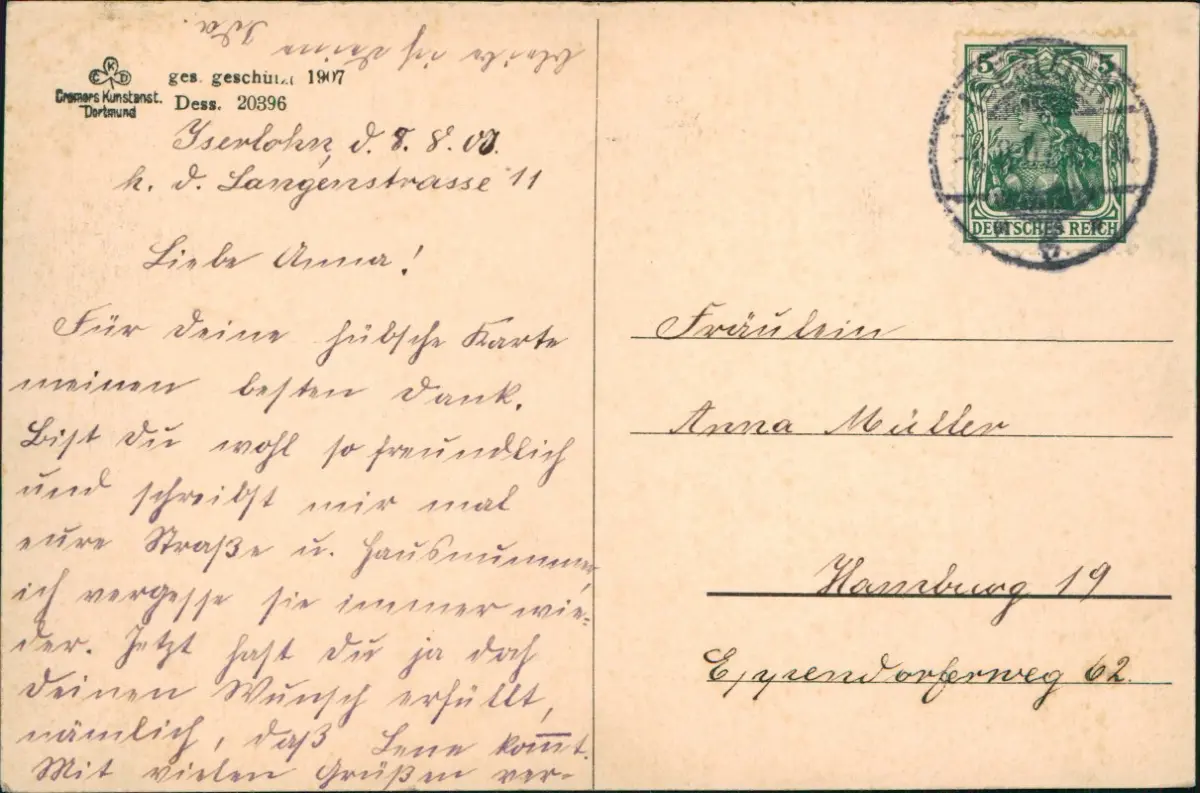 CKD
Cramers Kunstanst.
Dortmund
ges. geschützt 1907
Dess. 20396
Iserlohn, d. 8. 8. 07.
h. d. Langenstrasse 11
Liebe Anna!
Für Deine hübsche Karte
meinen besten Dank.
Bist Du wohl so freundlich
und schreibst mir mal
eure Straße u. Hausnummer,
ich vergesse sie immer wie-
der. Jetzt hast Du ja doch
Deinen Wunsch erfüllt,
nämlich, daß Lene kommt.
Mit vielen Grüßen ver-
bleibe ich Deine
Ida.
5 5
DEUTSCHES REICH
Fräulein
Anna Müller
Hamburg 19
Eppendorferweg 62.